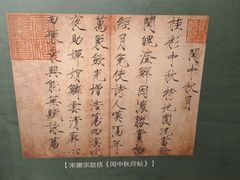 閏中秋月
桂彩中秋特地圓況當餘
閏魄澄鮮因懷勝賞初
經月免使詩人嘆隔年
萬象斂光增浩蕩四溟收
夜助嬋娟鱗雲清廓心
田豫乘興能無賦詠篇
【宋徽宗赵佶《闰中秋月帖》】